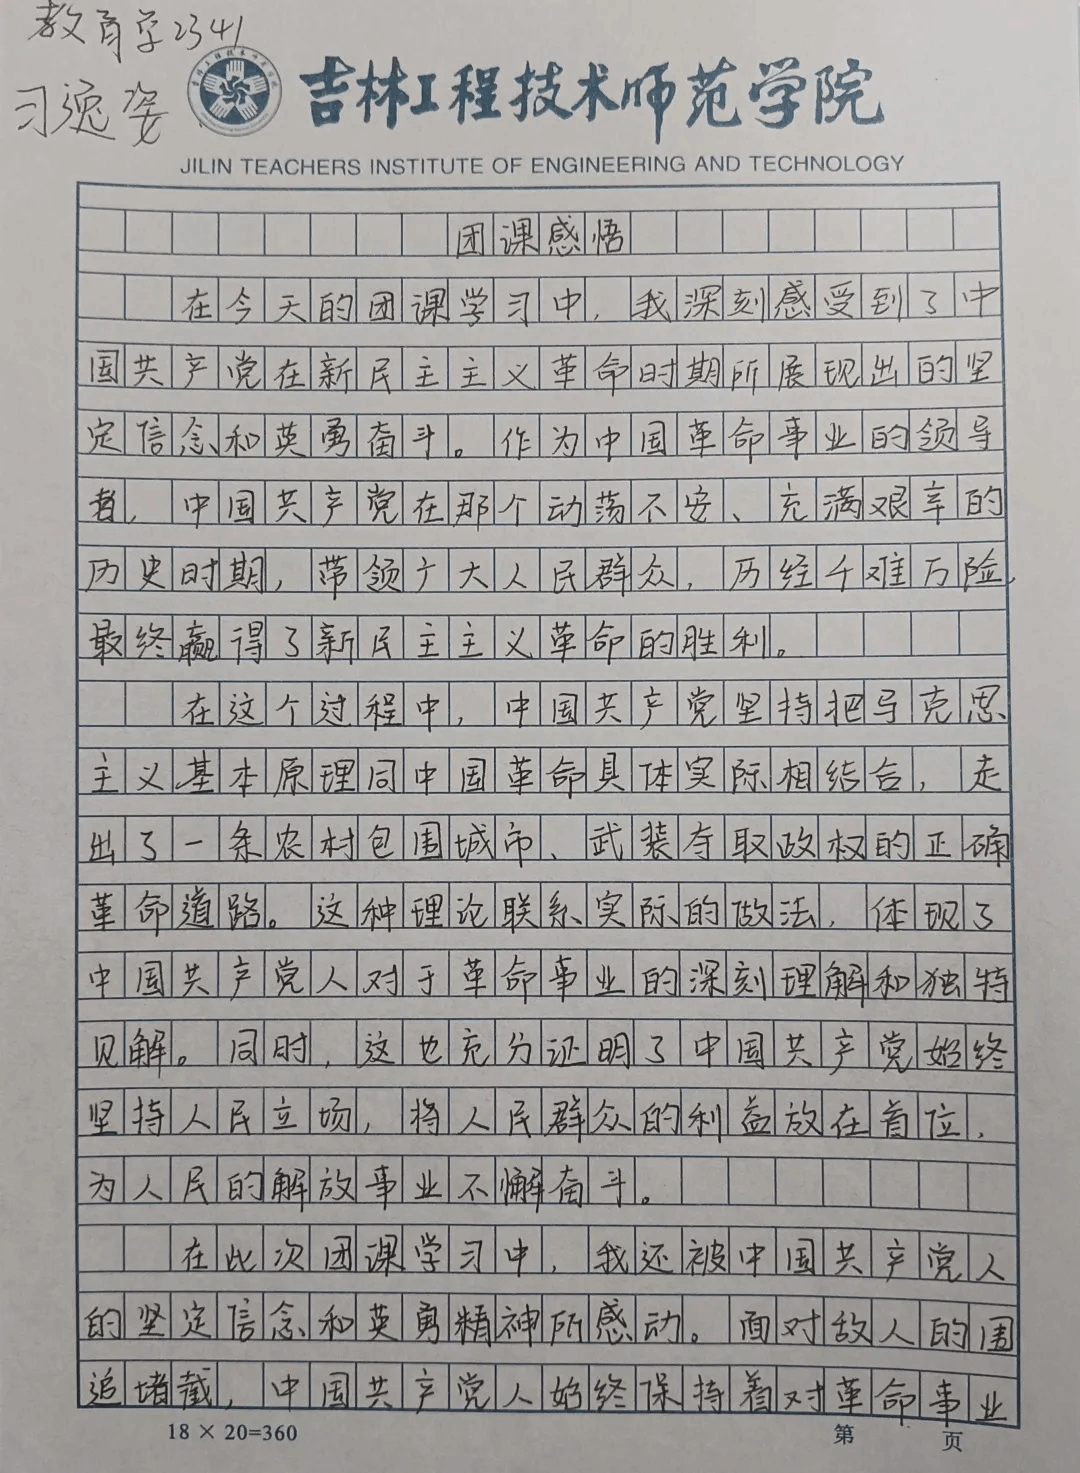 教育学2341
习逸姿
吉林工程技术师范学院
JILIN TEACHERS INSTITUTE OF ENGINEERING AND TECHNOLOGY
团课感悟
在今天的团课学习中，我深刻感受到了中
国共产党在新民主主义革命时期所展现出的坚
定信念和英勇奋斗。作为中国革命事业的领导
者，中国共产党在那个动荡不安、充满艰辛的
历史时期，带领广大人民群众，历经千难万险，
最终赢得了新民主主义革命的胜利。
在这个过程中，中国共产党坚持把马克思
主义基本原理同中国革命具体实际相结合，走
出了一条农村包围城市、武装夺取政权的正确
革命道路。这种理论联系实际的做法，体现了
中国共产党人对于革命事业的深刻理解和独特
见解。同时，这也充分证明了中国共产党始终
坚持人民立场，将人民群众的利益放在首位，
为人民的解放事业不懈奋斗。
在此次团课学习中，我还被中国共产党人
的坚定信念和英勇精神所感动。面对敌人的围
追堵截，中国共产党人始终保持着对革命事业
18 × 20=360 第 页